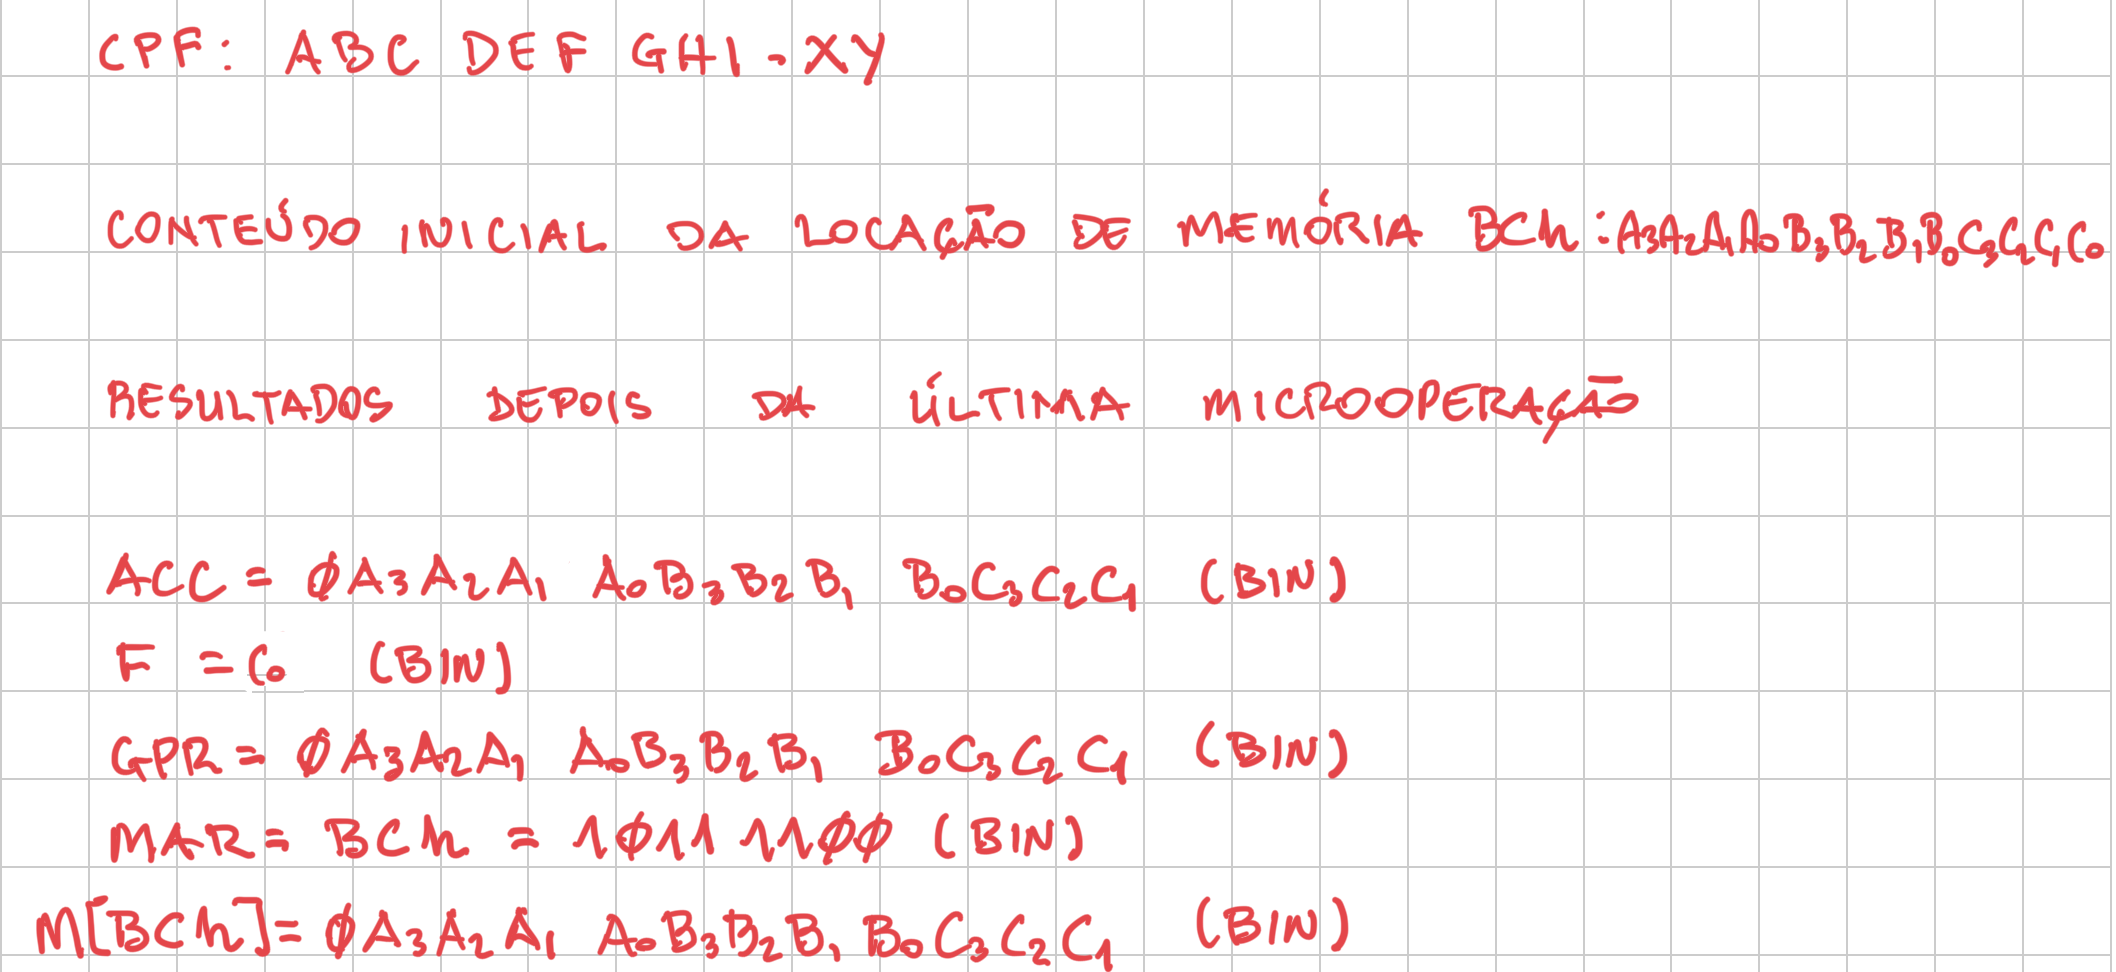 CPF: ABC DEF GHI-XY
CONTEÚDO INICIAL DA LOCAÇÃO DE MEMÓRIA BCh: A3A2A1A0B3B2B1B0C3C2C1C0
RESULTADOS DEPOIS DA ÚLTIMA MICROOPERAÇÃO
ACC = ØA3A2A1 A0B3B2B1 B0C3C2C1 (BIN)
F = C0 (BIN)
GPR = ØA3A2A1 A0B3B2B1 B0C3C2C1 (BIN)
MAR = BCh = 1Ø11 11ØØ (BIN)
M[BCh] = ØA3A2A1 A0B3B2B1 B0C3C2C1 (BIN)